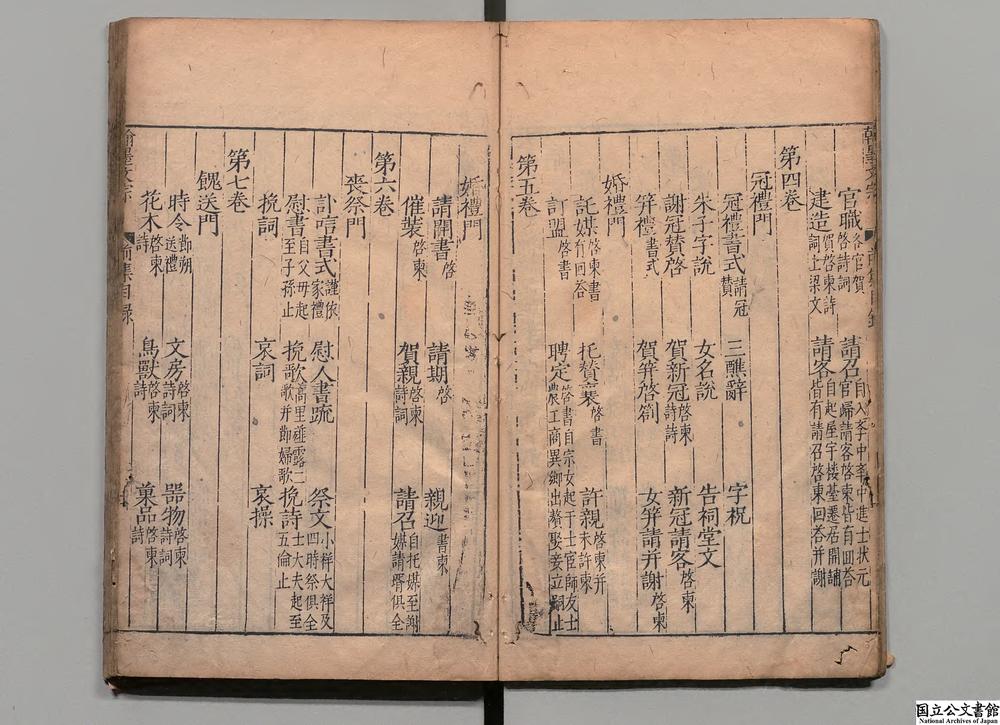 官職各官賀啓詩詞 請召自入斈中斈中進士狀元官歸請客啓柬皆有回答
建造賀啓柬詩詞上梁文 請客自起屋宇楼基遷居開舖皆有請召啓柬回答并謝
第四卷
冠禮門
冠禮書式請冠賛 三醮辭 字祝
朱子字說 女名說 告祠堂文
謝冠賛啓 賀新冠啓柬詩詩 新冠請客啓柬
笄禮書式 賀笄啓劄 女笄請并謝啓柬
婚禮門
託媒啓柬書有回答 托賛啓書 許親啓柬并未許柬
訂盟啓書 聘定啓書自宗女起于士宦師友士農工商異鄉出贅娶妾立嗣止
第五卷
婚禮門
請開書啓 請期啓 親迎書柬
催裝啓柬 賀親啓柬詩詞 請召自托媒至謝媒請壻俱全
第六卷
喪祭門
訃唁書式謹依家禮 慰人書疏 祭文小祥大祥及四時祭俱全
慰書自父毋起至子孫止 挽歌蒿里薤露二歌并節婦歌 挽詩士大夫起至五倫止
挽詞 哀詞 哀操
第七卷
餽送門
時令節朔送禮 文房啓柬詩詞 器物啓柬詩詞
花木啓柬詩 鳥獸啓柬詩 菓品啓柬詩
翰墨文宗 前集目錄
国立公文書館
National Archives of Japan